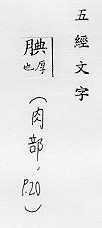 五經文字
腆厚也
(肉部,P.20)